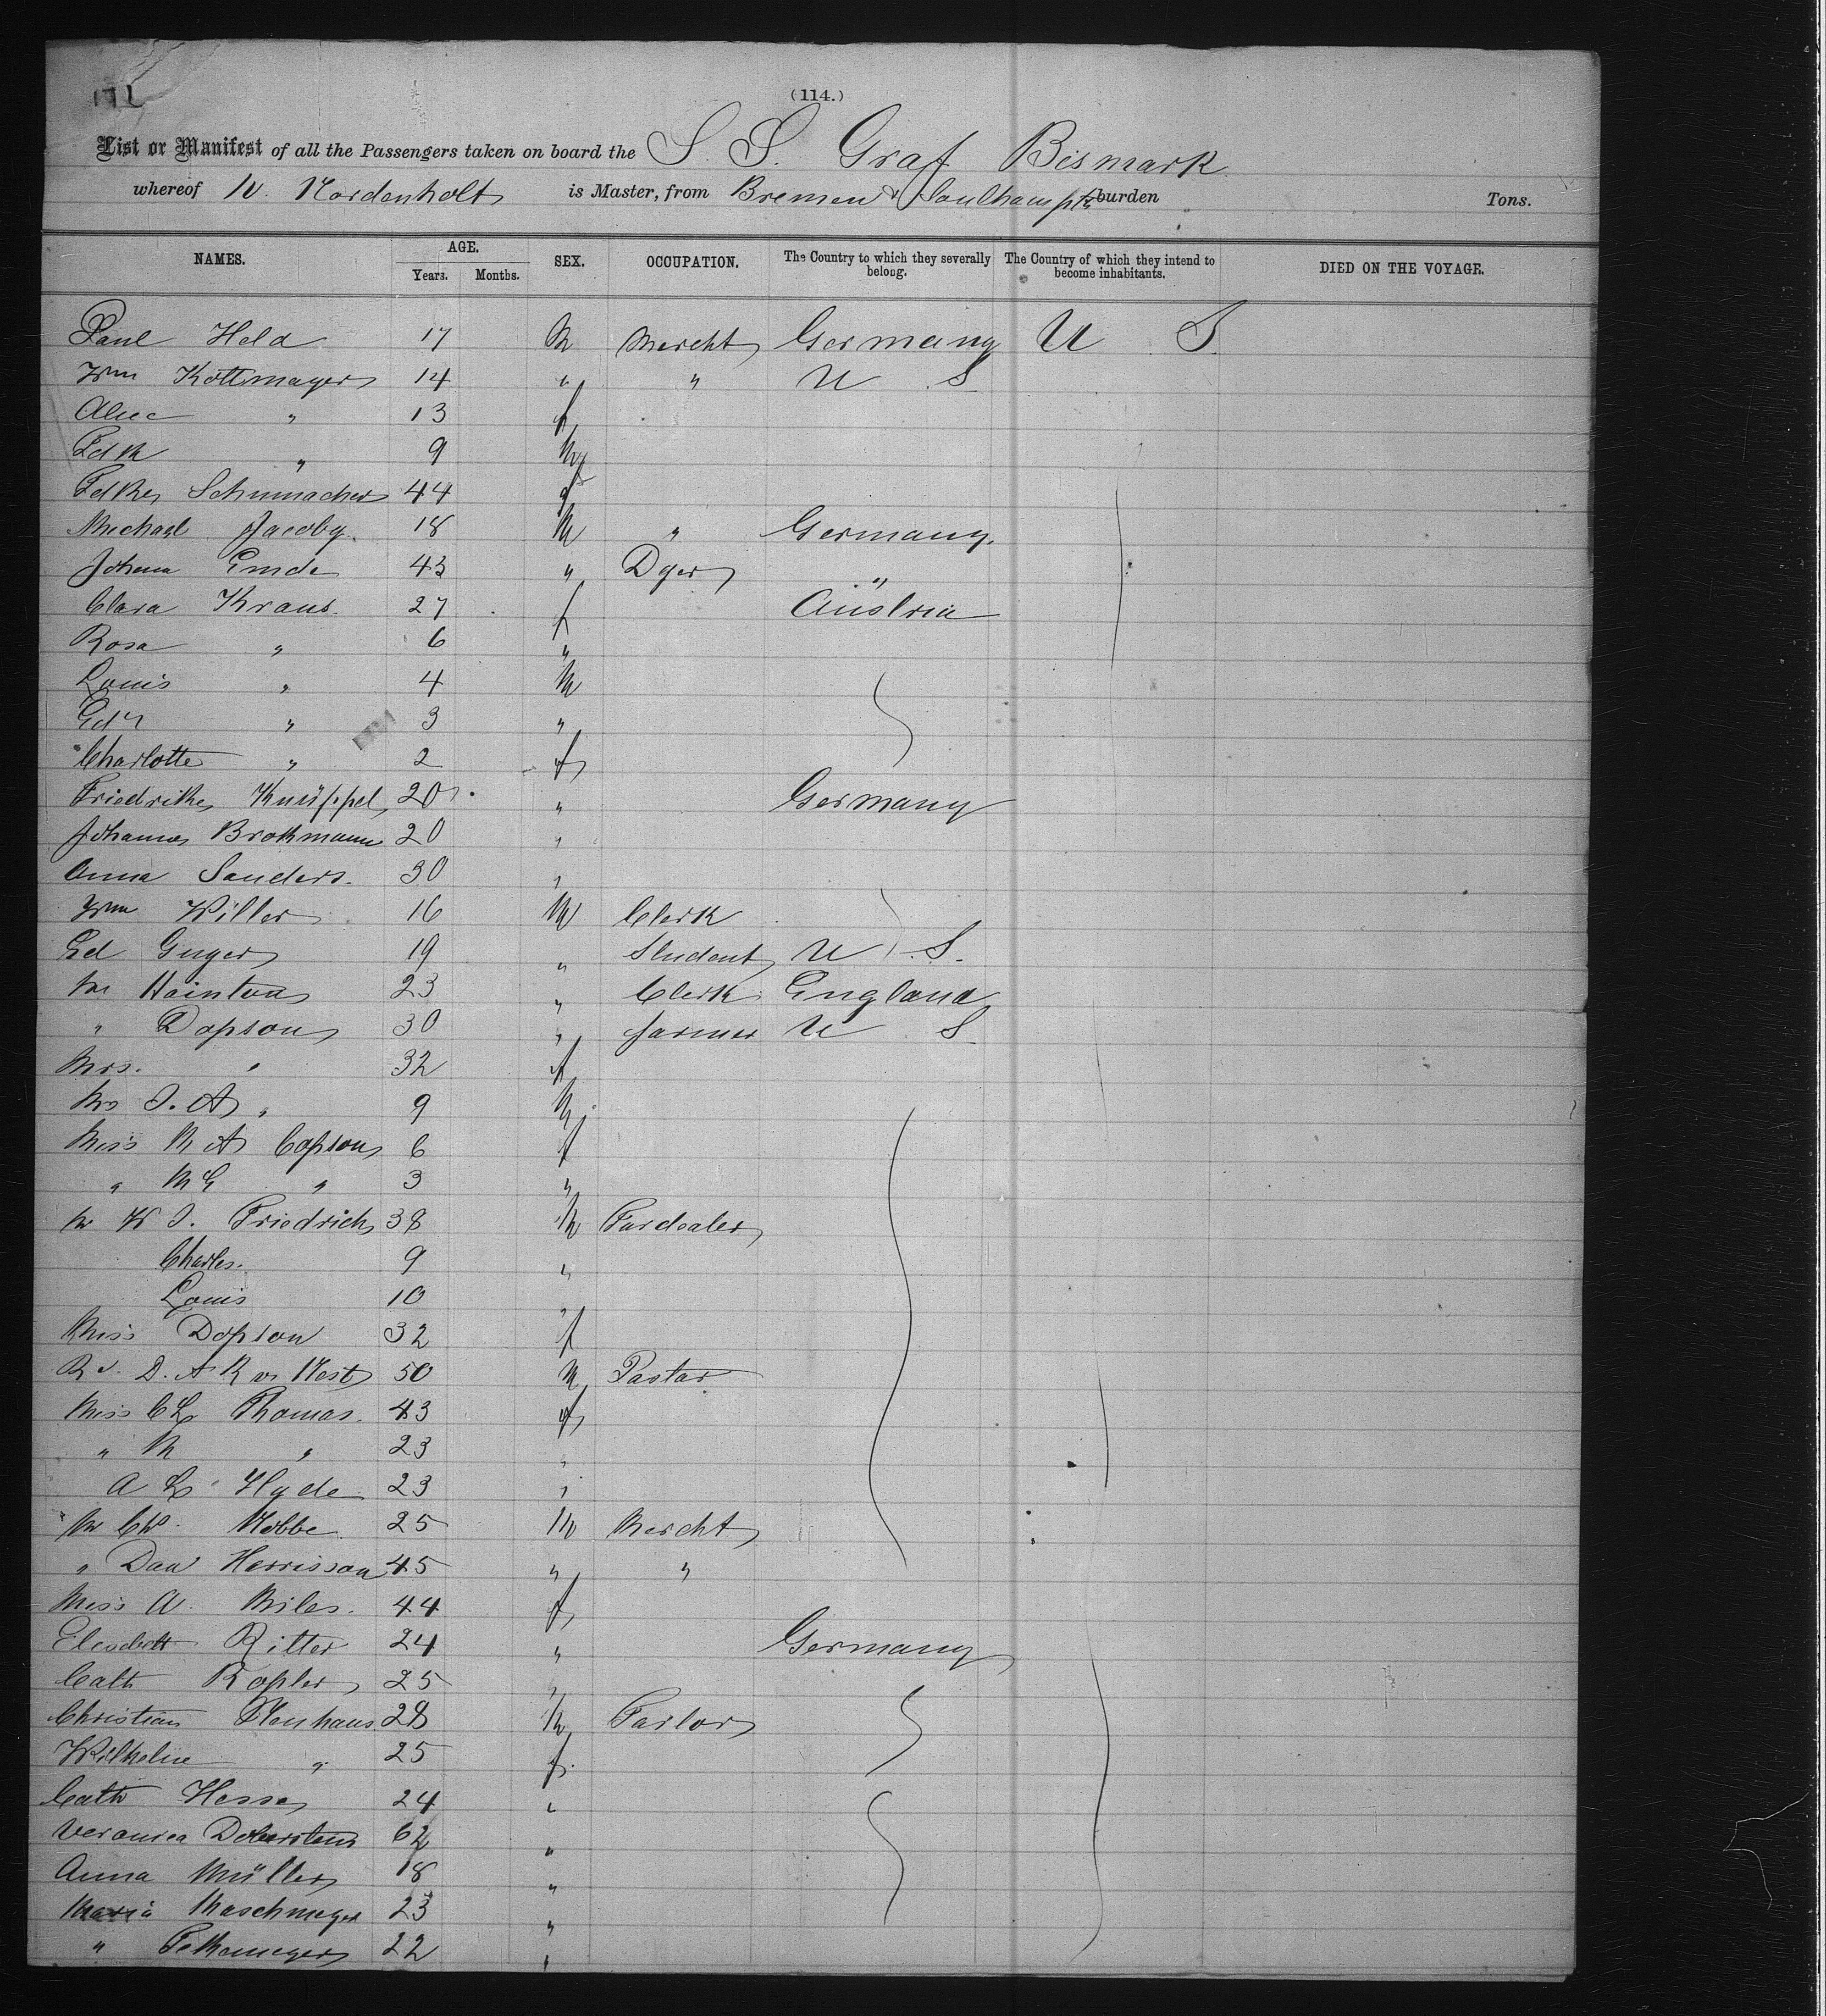 (114.)
List or Manifest of all the Passengers taken on board the S. S. Graf Bismark
whereof N. Nordenholt is Master, from Bremen & Southampton burden Tons.
NAMES. AGE. SEX. OCCUPATION. The Country to which they severally belong. The Country of which they intend to become inhabitants. DIED ON THE VOYAGE.
Years. Months.
Paul Held 17 M Mercht Germany U S.
Wm Kottmayer 14 " " U S
Alice " 13 f
Fdk " 9 M
Fdke Schumacher 44 f
Michael Jacoby 18 M " Germany.
Johann Emde 43 " Dyer "
Clara Kraus. 27 f Austria
Rosa " 6 "
Louis " 4 M
Edn " 3 "
Charlotte " 2 f
Friedrike Knüppel 20 " Germany
Johanna Brokmann 20 "
Anna Sanders. 30 "
Wm Willer 16 M Clerk
Ed Guyer 19 " Student U S.
Mr Hainton 23 " Clerk England
" Dopson 30 " farmer U S
Mrs. " 32 f
J. A " 9 M
Miss M A Copson 6 f
" M E " 3 "
Mr W J. Friedrich 38 M Furdealer
Charles. 9 "
Louis 10 "
Miss Dopson 32 f
Rv. D. A R West 50 M Pastor
Miss C L Thomas. 43 f
" M " 23 "
A L Hyde 23 "
Mr Ch. Nobbe 25 M Mercht
" Dan Herrisson 45 " "
Miss A. Miles. 44 f
Elesabeth Ritter 24 " Germany
Cath Kopler 25 "
Christian Neuhaus 28 M Tailor
Wilhelme " 25 f.
Cath Hesse 24 "
Veronica 62 "
Anna Müller 18 "
Maria Maschmeyer 23 "
" Fethmeyer 22 "